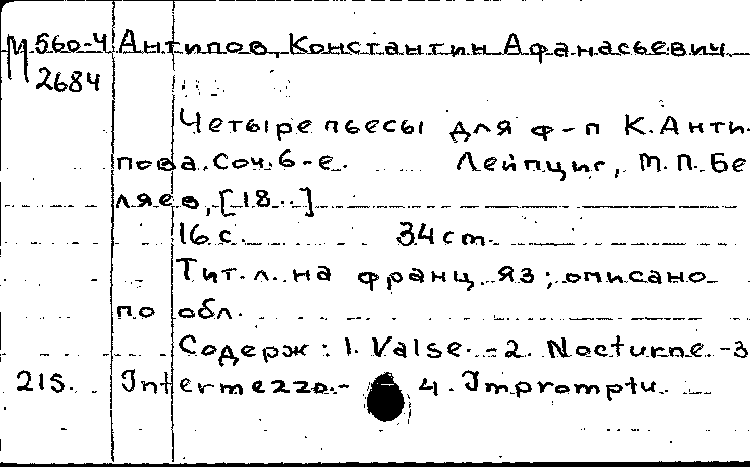 М 560-4 Антипов, Константин Афанасьевич
2684
Четыре пьесы для ф-п К. Анти-
пова. Соч. 6-е. Лейпциг, М.П. Бе
ляев, [18..]
16 с. 34 cm.
Тит. л. на франц. яз; описано
по обл.
Содерж: 1. Valse. - 2. Nocturne. - 3
215. Intermezzo. - 4. Impromptu.